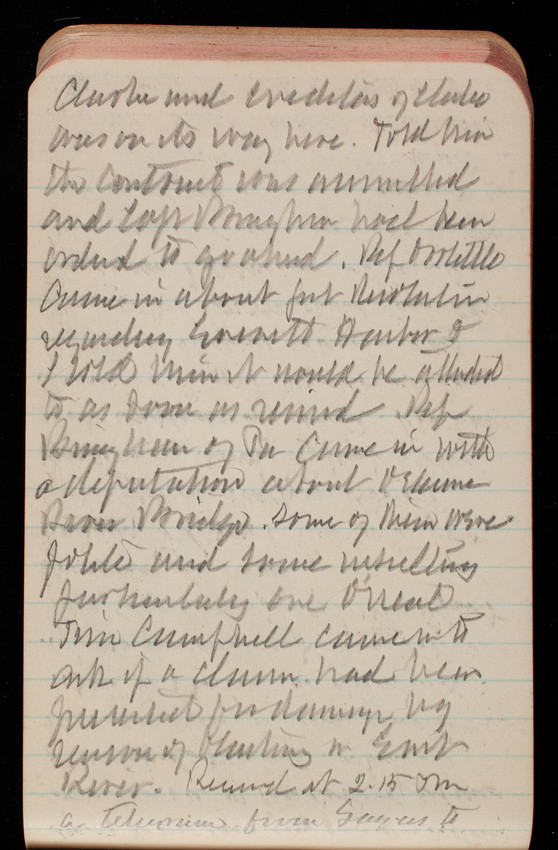 and creditors of
was on its way here. Told him
the contract was annulled
and Capt Bingham had been
ordered to go ahead. Rep Doolittle
came in about Jnt Resolution
regarding Everett Harbor &
I told him it would be attended
to as soon as received. Rep
Bingham of Pa came in with
a deputation about Delaware
River Bridge. Some of them were
polite and some insulting
particularly one O'Neal
Tim Campbell came in to
ask if a claim had been
presented for damage by
reason of blasting in East
River. Received at 2.15 Pm
a telegram from to